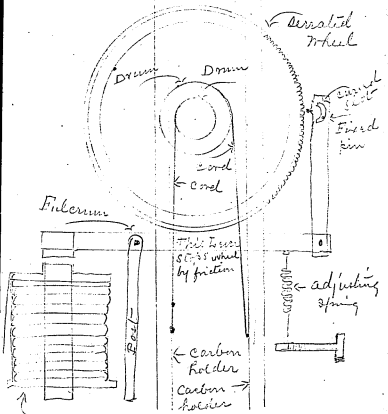 Serrated
Wheel
Drum Drum
curved
slot
Fixed
pin
cord
cord
Fulcrum
This lever
stops wheel
by friction
adjusting
spring
Post
carbon
holder
carbon
holder